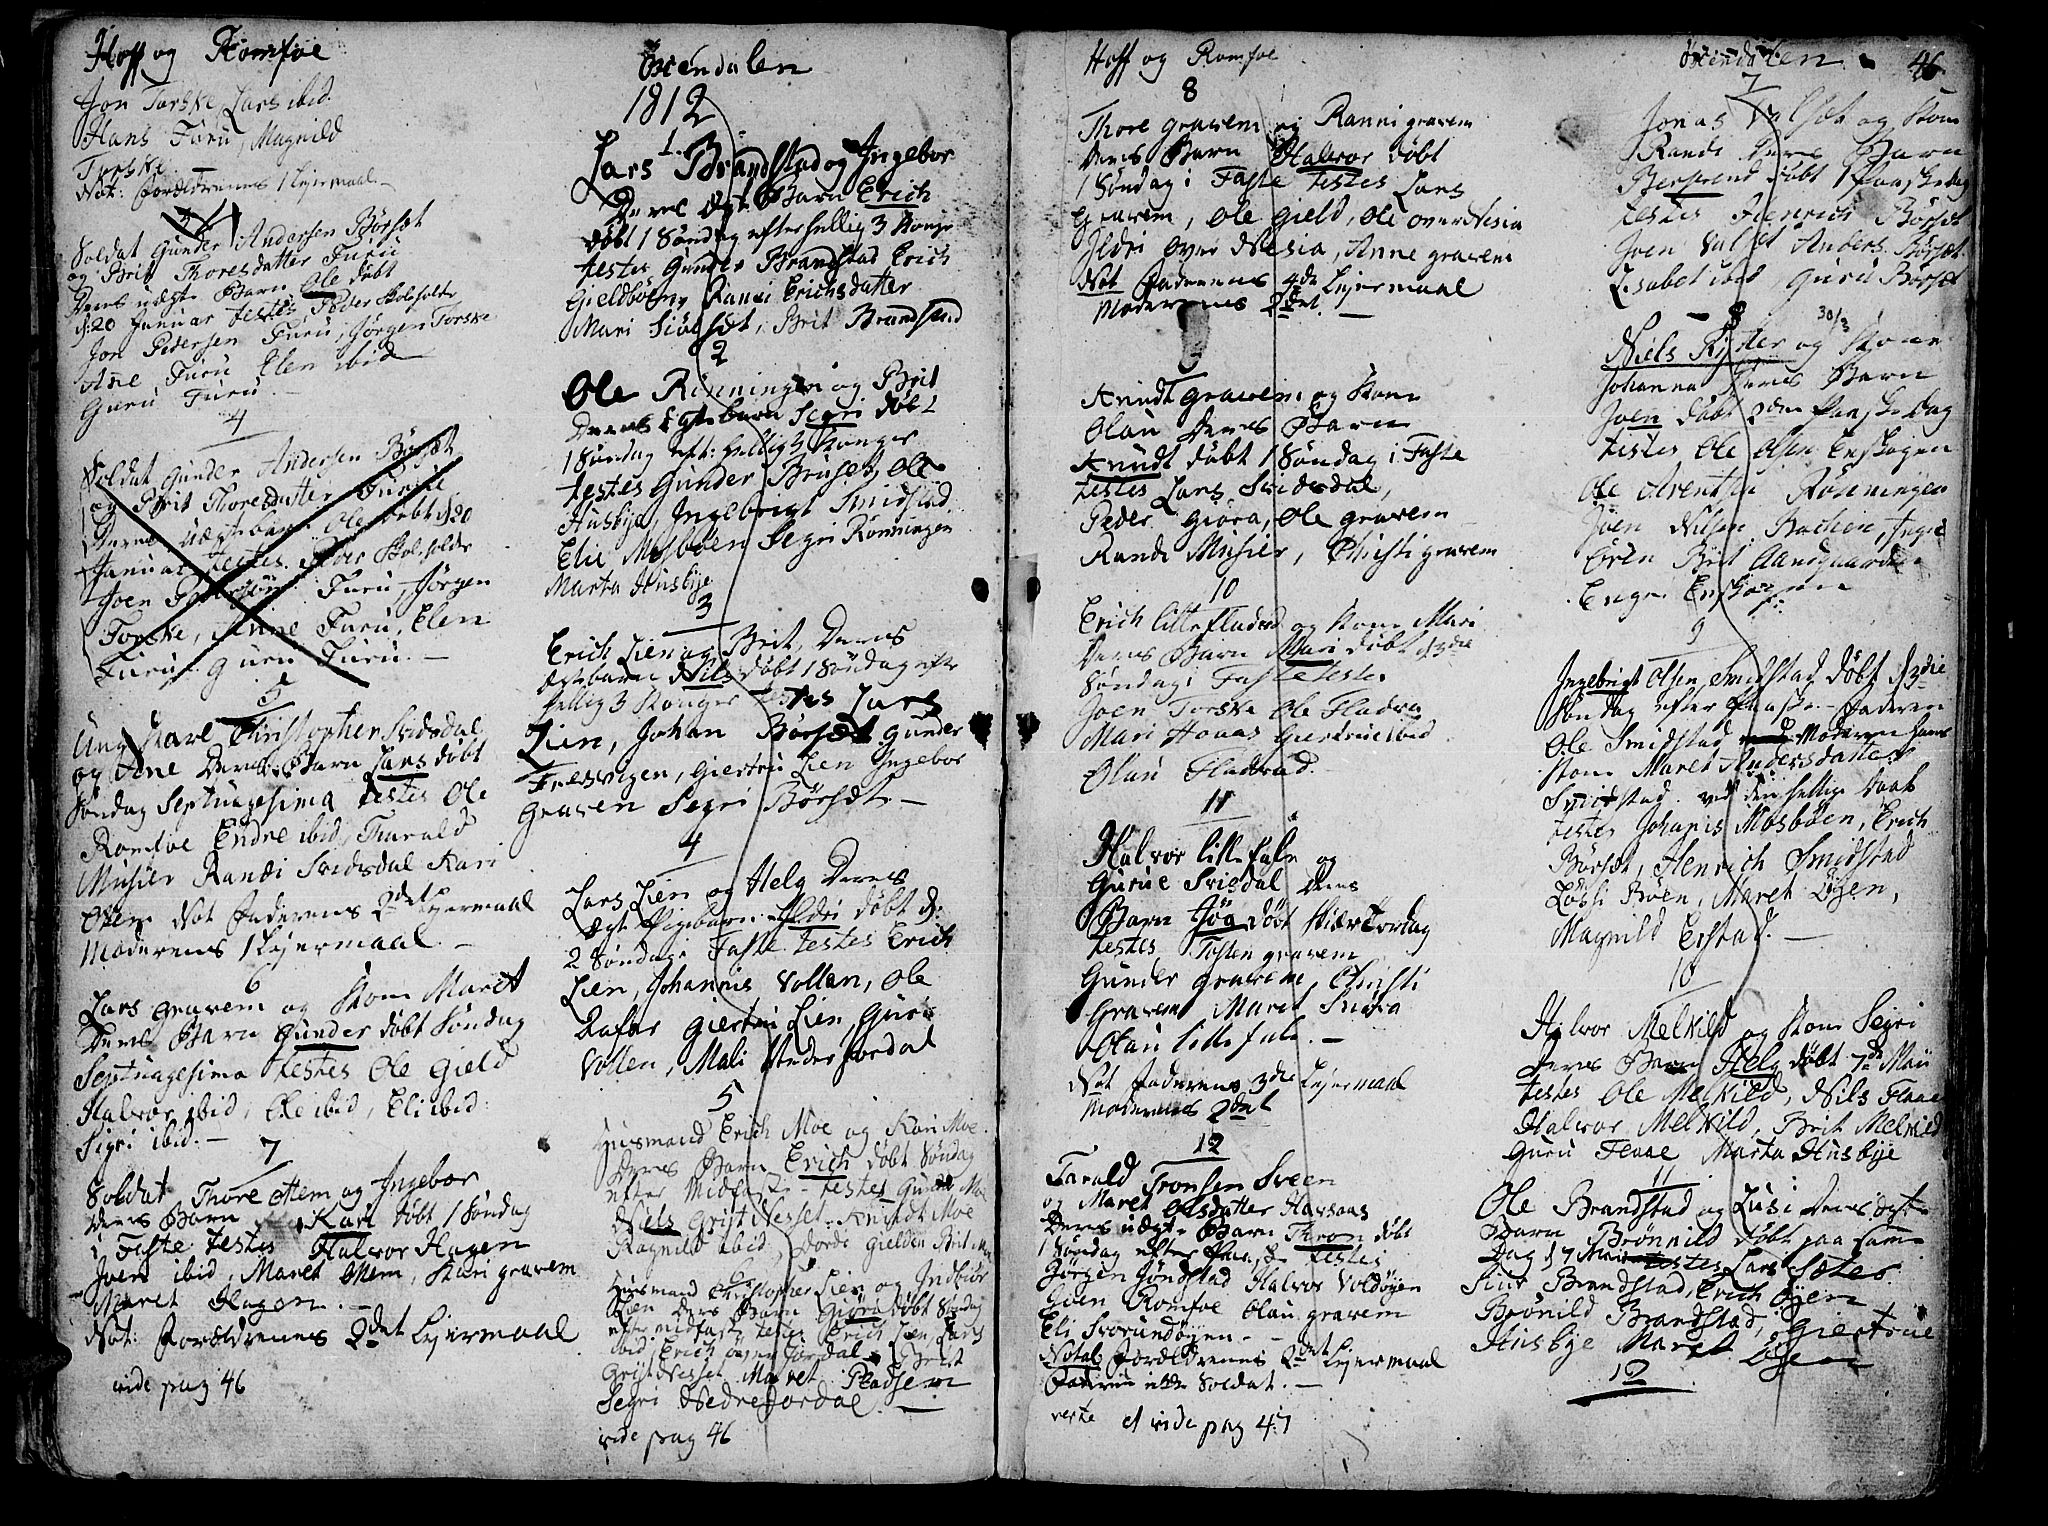 Hoff og Romfoe
Jon Torske, Lars ibid.
Hans Furu, Magnild
Torske. —
Not: Forældrenes 1 Lejermaal. —
3
Soldat Gunder Andersen Börsæt
og Brit Thoresdatter Furu
Deres uægte Barn Ole döbt
d: 20 Januar testes Peder Skolholdr
Jon Pedersen Furu, Jörgen Torske
Ane Furu Elen ibid
Guru Furu. —
4
Soldat Gunder Andersen Börsæt
og Brit Thoresdatter Furue
Deres uægt barn Ole döbt d 20
Januar testes. Skolholdr
Joen Pedersön Furu, Jörgen
Torske, Anne Furu, Elen
Furu. Guru Furu. —
5
Ung Karl Christopher Svidsdal
og Ane Deres Barn Lars döbt
Söndag Septuagesima testes Ole
Romfoe Endre ibid, Tharald
Musier Randi Svidsdal Kari
Not Faderens 2det Lejermaal
Moderens 1 Lejermaal. —
6
Lars Gravem og Kone Maret
Deres Barn Gunder döbt Söndag
Septuagesima testes Ole Gield
Halvor ibid, Ole ibid, Eli ibid:
Sigri ibid. —
7
Soldat Thore Mem og Ingebor
Deres Barn Kari döbt 1 Söndag
i Faste testes Halvor Hagen
Joen ibid, Maret Mem, Kari Gravem
Maret Hagen. —
Not: Forældrenes 2det Lejermaal
vide pag 46
Öxendalen
1812
1.
Lars Brandstad og Ingebor
Deres ægte Barn Erich
döbt 1 Söndag efter hellig 3 Konge
testes Gunder Brandstad Erich
Gieldbölng Randi Erichsdatter
Mari Siölset, Brit Brandstad
2
Ole Rönningen og Brit
Deres Egte barn Segri döbt
1 Söndag eft: hellig 3 Konger
testes Gunder Bruset, Ole
Husbye, Ingebrigt Smidstad
Elie Mosböen Segri Rönningen
Marta Husbye
3
Erich Lien og Brit, Deres
Egtebarn Nils döbt 1 Söndag efte
hellig 3 Konger testes Lars
Lien, Johan Börsæt Gunder
Fresvigen, Giertru Lien Ingebor
Graven Segri Börsæt —
4
Lars Lien og Helg Deres
Ægt Pigebarn Ildri döbt d:
2 Söndag i Faste testes Erich
Lien, Johannis Vollen, Ole
Giertru Lien, Guru
Vollen, Mali Nedre Jordal
5
Husmand Erich Moe og Kari Moe.
Deres Barn Erich döbt Söndag
efter Midfast — testes Gunder Moe
Niels Grist Nesset. Knudt Moe
Ragnild ibid, Dorde Gielden Brit
6
Husmand Christopher Lien og Indbiör
Lien Deres Barn Giöra döbt Söndag
efter midfast testes Erich Lien, Lars
ibid, Erich over Jordal — Brit
Grist Nesset, Maret
Segri Nedre Jordal —
vide pag 46
Hoff og Romfoe
8
Thore Gravem og Ranni gravem
Deres Barn Halvor döbt
1 Söndag i Faste testes Lars
Gravem, Ole Gield, Ole over Nesia
Ildri over Nesia, Anne gravem
Not Faderens 4de Lejermaal
Moderens 2det. —
Knudt Gravem og Kone
Olau Deres Barn
Knudt döbt 1 Söndag i Faste
testes Lars Svidsdal,
Peder Giöra, Ole gravem
Randi Musier, Christi gravem
10
Erich Litle Fladvad og Kone Mari
Deres Barn Mari döbt d 3die
Söndag i Faste testes
Joen Torske Ole Fladva
Mari Hoaas Giertrue ibid
Olau Fladvad. —
11
Halvor Lillefale og
Gurue Svisdal Deres
Barn Jöa döbt Skiær Torsdag
testes, Tosten gravem
Gunder gravem, Christi
Gravem, Maret Snöva
Olau Lillefale. —
Not Faderens 3die Lejermaal
Moderens 2det
12
Tarald Tronsen Sveen
og Maret Olsdatter Havsaas
Deres uægte Barn Thron döbt
1 Söndag efter Paaske testes
Jörgen Jöndstad Halvor Voldöyen
Gien Romfoe Olau gravem
Eli Svorundöyen. —
Notal Forældrenes 2det Lejermaal
Faderen ikke Soldat. —
verte et vide pag 47
Öxendalen
46
7
Jonas Valset og Kone
Randi Deres Barn
Berserend döbt 1 Paaskedag
testes Henrich Börsæt
Joen Valset Anders Börsæt
Lisabet ibid Guru Börset
8 30/3
Niels Ryder og Kone
Johanna Deres Barn
Joen döbt 2den Paaskedag
testes Ole Olsen Enskogen
Ole Arentsen Rönningen
Joen Nilsen Bachen, Ingri
Even Brit Aandgaarden
Enger Enskogen
9
Ingebrigt Olsen Smidstad döbt d 3die
Söndag efter Paaske — Faderen
Ole Smidstad Moderen hans
Kone Maret Andersdatter
Smidstad. ved den hellige Daab
testes Johanis Mosböen, Erich
Börsæt, Henrich Smidstad
Lössi Böen, Maret Öyen,
Magnild Erstad. —
10
Halvor Melkild og Kone Segri
Deres Barn Helg döbt 7de Maii
testes Ole Melkild, Nils Flaae
Halvor Melkild, Brit Melkild
Guru Flaae Marta Husbye
11
Ole Brandstad og Lusi Deres ægte
Barn Brönnild döbt paa samme
Dag d 7 Mai testes Lars Sæter
Siur Brandstad, Erich Öyen
Brönild Brandstad, Giertrue
Husbye Maret Öyen
12